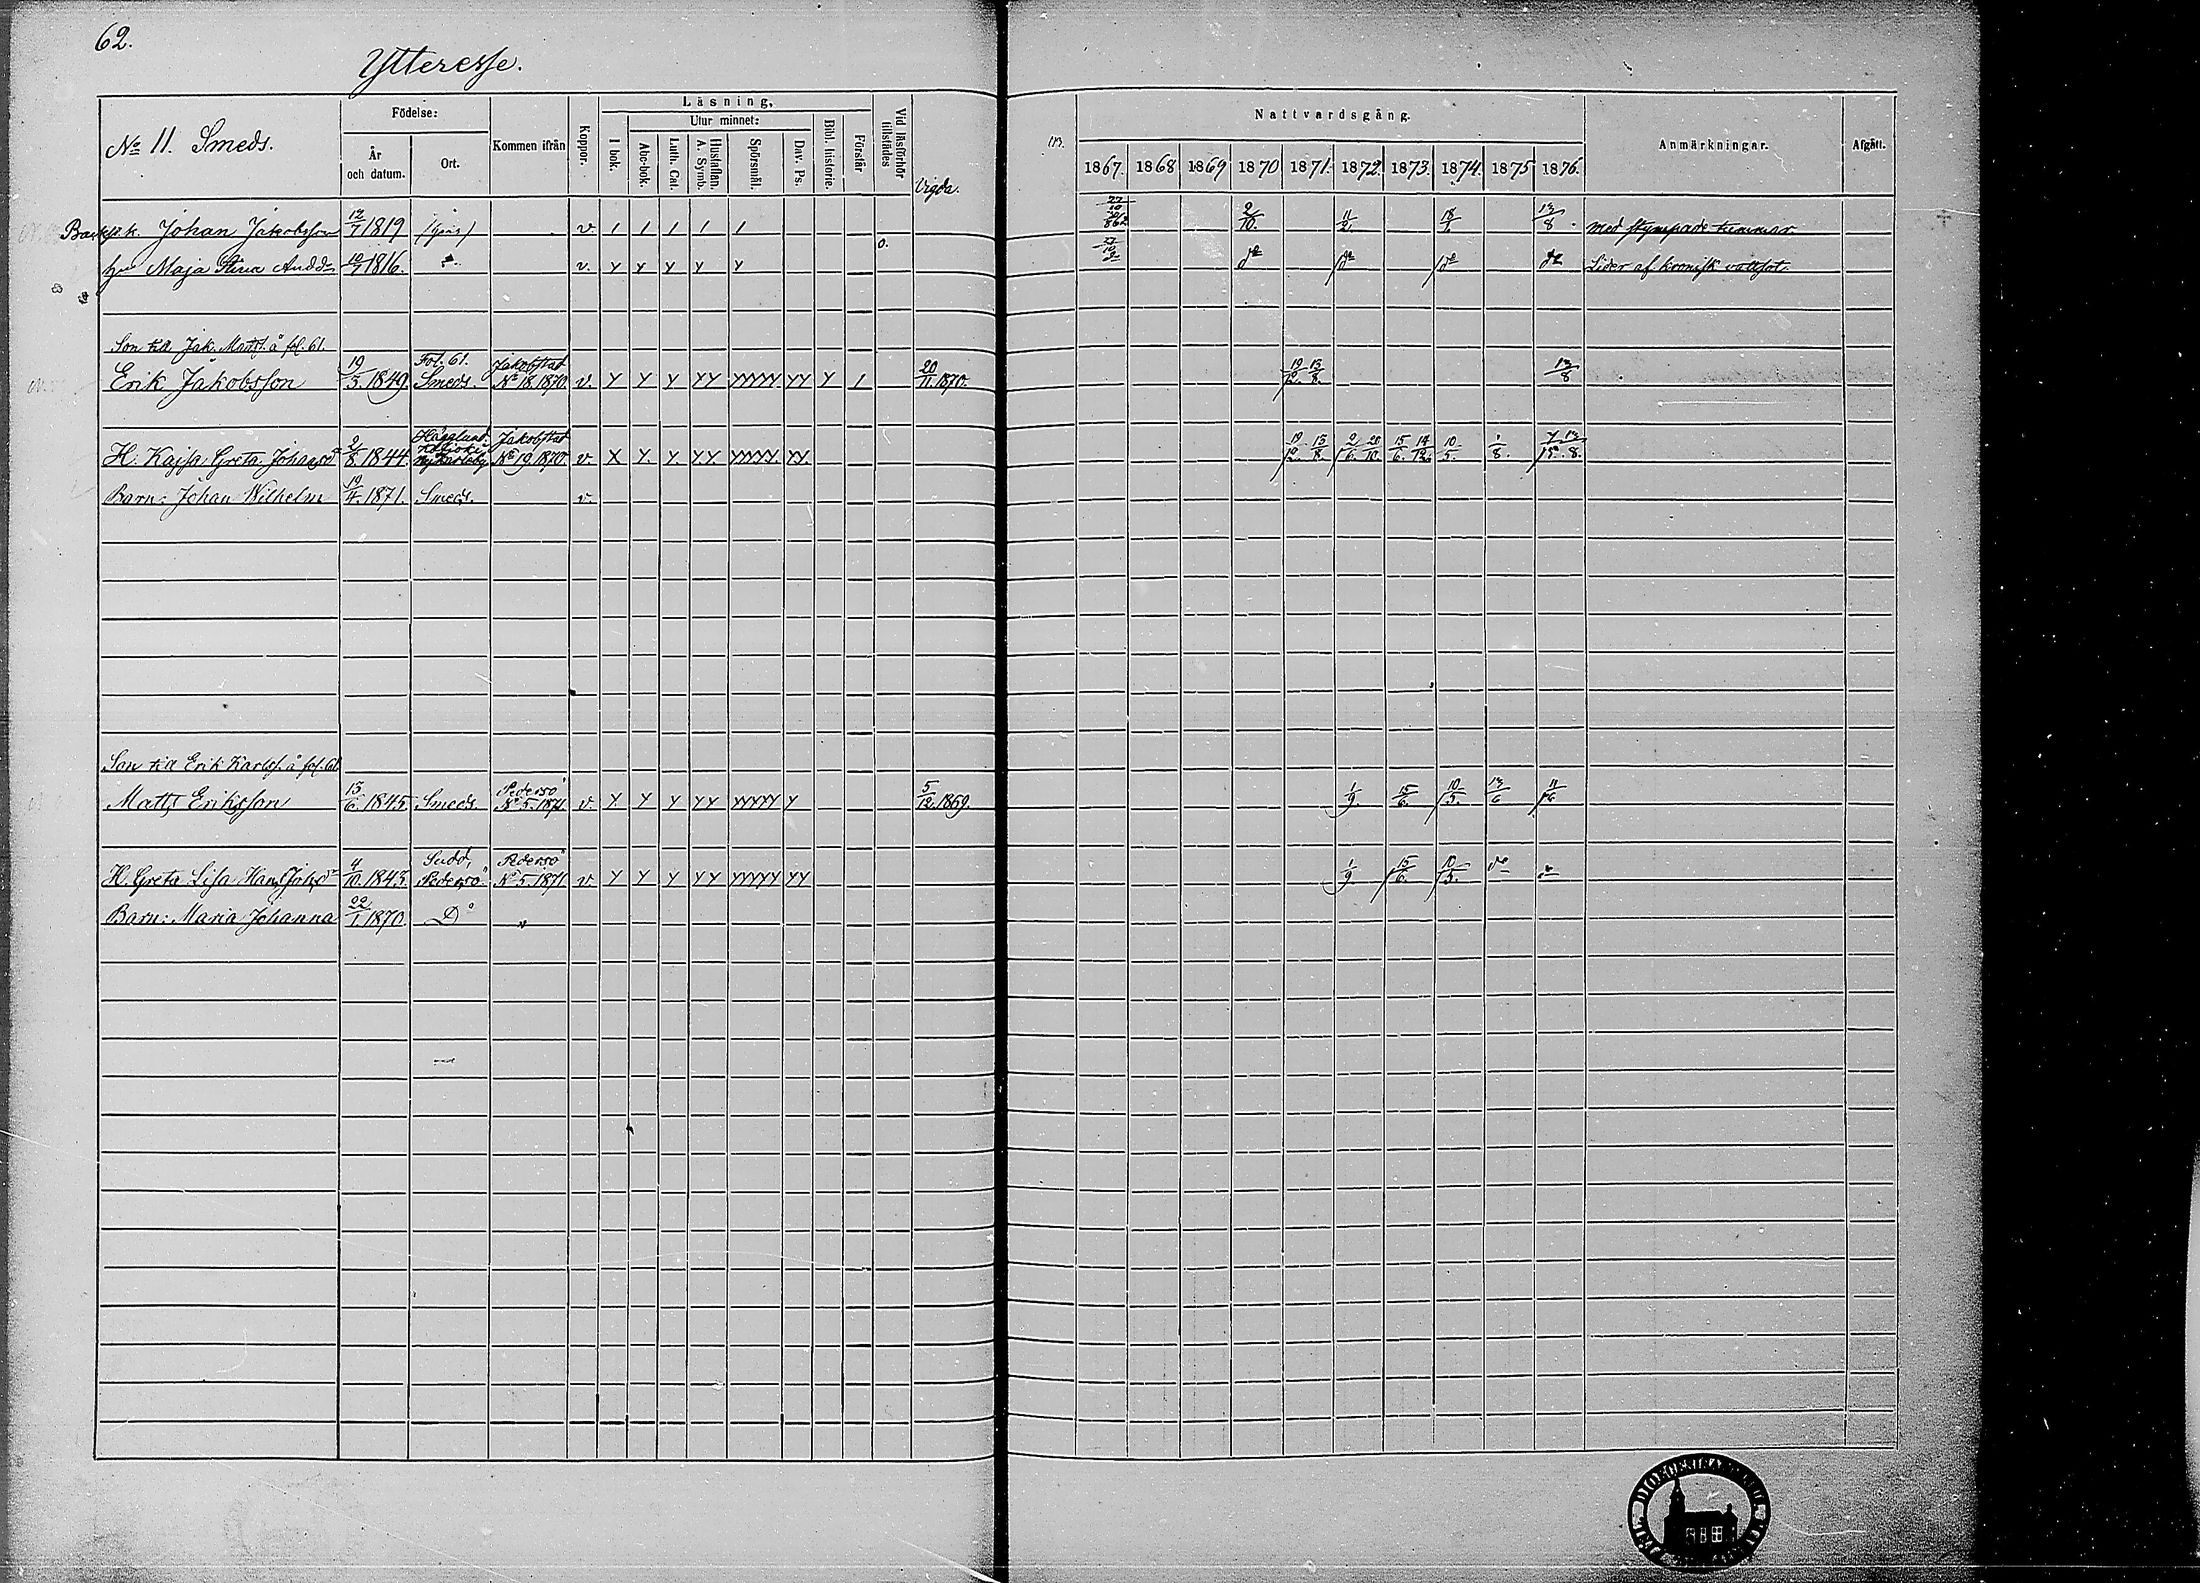 62.
Ytteresse.
No 11. Smeds.
Födelse:
År och datum.
Ort.
Kommen ifrån
Koppor.
Läsning,
I bok.
Utur minnet:
Abc-bok.
Luth. Cat.
Hustaflan. A. Symb.
Spörsmål.
Dav. Ps.
Bibl. historie.
Förstår
Vid läsförhör tillstädes
Vigda.
Nattvardsgång.
1867. 1868 1869 1870 1871. 1872. 1873. 1874. 1875 1876.
Anmärkningar.
Afgått.
Johan Jakobsson 12/7 1819 v. 1 1 1 1 1 2/10. 11/2 13/8
Maja Stina Andds 10/7 1816. v. y y y y y o. Lider af kronisk
Son t.a Jak. Matts. å fol. 61.
Erik Jakobsson 19/3 1849 Fol. 61. Smeds. Jakobstad No 18. 1870. v. y y y yy yyyyy yy y 1 20/11 1870. 19/12. 13/8. 13/8
H. Kajsa Greta Johansd 2/8 1844. Hägglund Nykarleby Jakobstad No 19. 1870. v. x y. y. y.y. yyyyy. yy. 19/12. 13/8. 2/6. 20/10. 15/6. 14/12. 10/5. 1/8. 13/8.
Barn: Johan Wilhelm 19/4. 1871. Smeds. v.
Son t.a Erik Karlss. å fol. 61
Matts Eriksson 15/6. 1845 Smeds. Pedersö No 5. 1871 v. y y y yy yyyyy y 5/12. 1869. 1/9. 15/6. 10/5. 13/6 11/6
H. Greta Lisa Hans Johsd 4/10. 1843. Sudd, Pedersö. Pedersö No 5. 1871 v. y y y yy yyyyy yy 1/9. 15/6. 10/5. do do
Barn: Maria Johanna 22/1. 1870. Do "